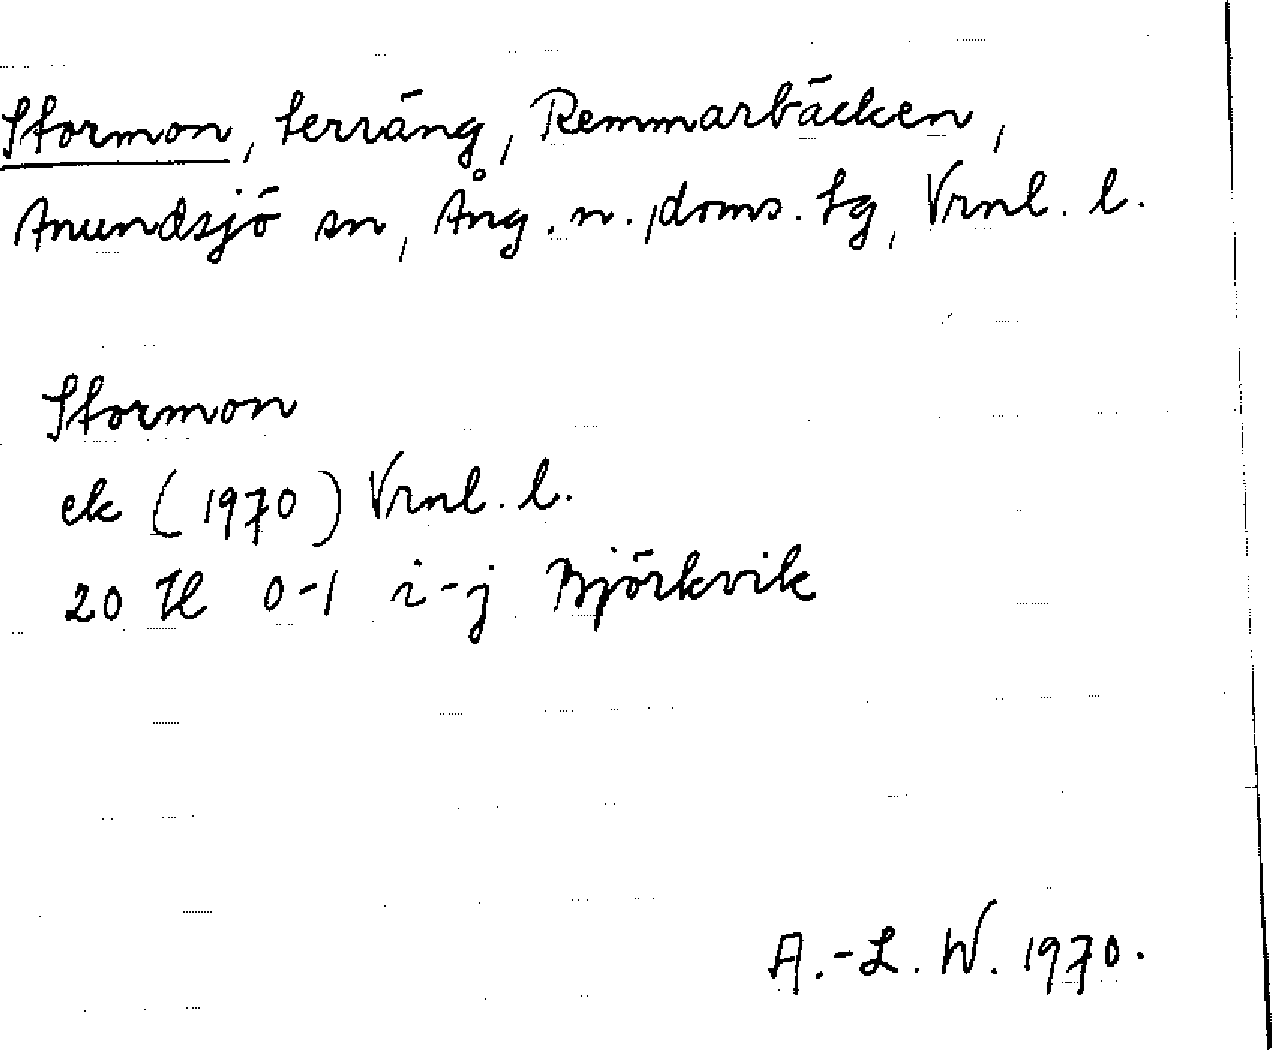 Stormon, terräng, Remmarbäcken,
Anundsjö sn, Ång. n. doms. tg, Vrnl. l.
Stormon
ek (1970) Vrnl. l.
20 H 0-1 i-j Björkvik
A.-L. W. 1970.